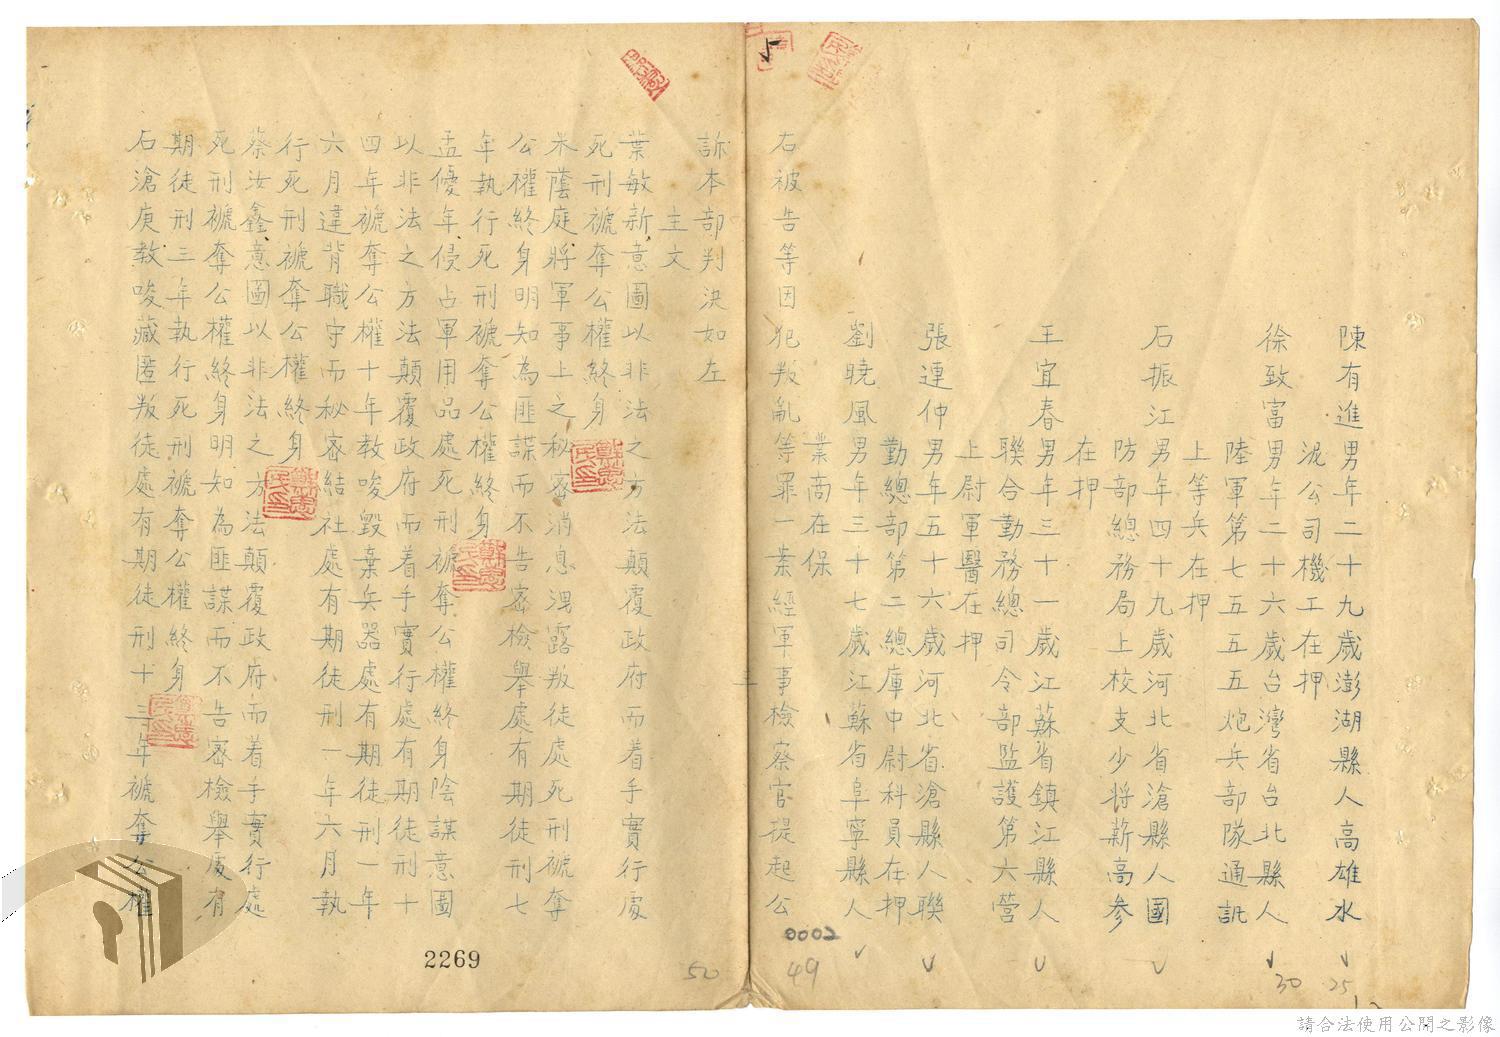 陳有進男年二十九歲澎湖縣人高雄水
泥公司機工在押
徐致富男年二十六歲台灣省台北縣人
陸軍第七五五五炮兵部隊通訊
上等兵在押
石振江男年四十九歲河北省滄縣人國
防部總務局上校支少將薪高參
在押
王宜春男年三十一歲江蘇省鎮江縣人
聯合勤務總司令部監護第六營
上尉軍醫在押
張連仲男年五十六歲河北省滄縣人聯
勤總部第二總庫中尉科員在押
劉曉風男年三十七歲江蘇省阜寧縣人
業商在保
右被告等因犯叛亂等罪一案經軍事檢察官提起公
訴本部判決如左
主文
葉敏新意圖以非法之方法顛覆政府而着手實行處
死刑褫奪公權終身
米蔭庭將軍事上之秘密消息洩露叛徒處死刑褫奪
公權終身明知為匪諜而不告密檢舉處有期徒刑七
年執行死刑褫奪公權終身
孟優年侵占軍用品處死刑褫奪公權終身陰謀意圖
以非法之方法顛覆政府而着手實行處有期徒刑十
四年褫奪公權十年教唆毀棄兵器處有期徒刑一年
六月違背職守而秘密結社處有期徒刑一年六月執
行死刑褫奪公權終身
蔡汝鑫意圖以非法之方法顛覆政府而着手實行處
死刑褫奪公權終身明知為匪諜而不告密檢舉處有
期徒刑三年執行死刑褫奪公權終身
石滄庚教唆藏匿叛徒處有期徒刑十三年褫奪公權
三
0002
49
50
30
25
2269
請合法使用公開之影像